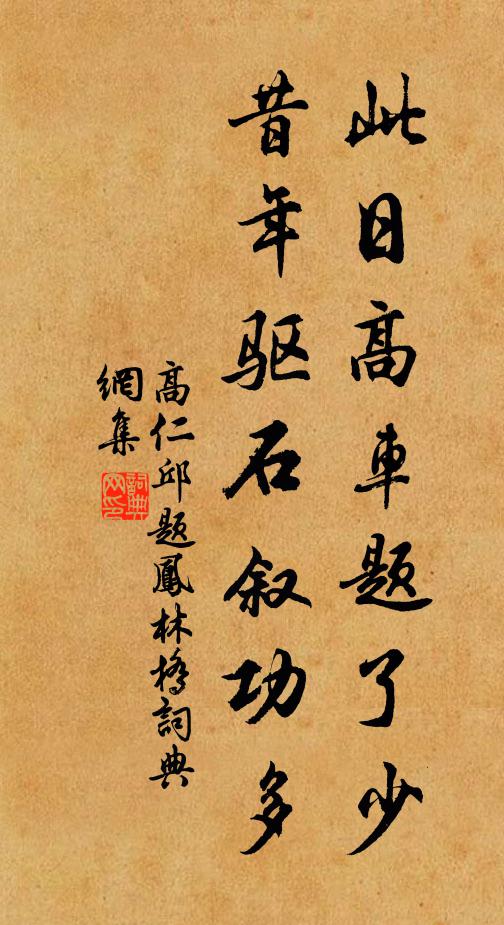 此日高車題了少
昔年驱石叙功多
高仁邱題鳳林橋詞典
網集
詞典
网印